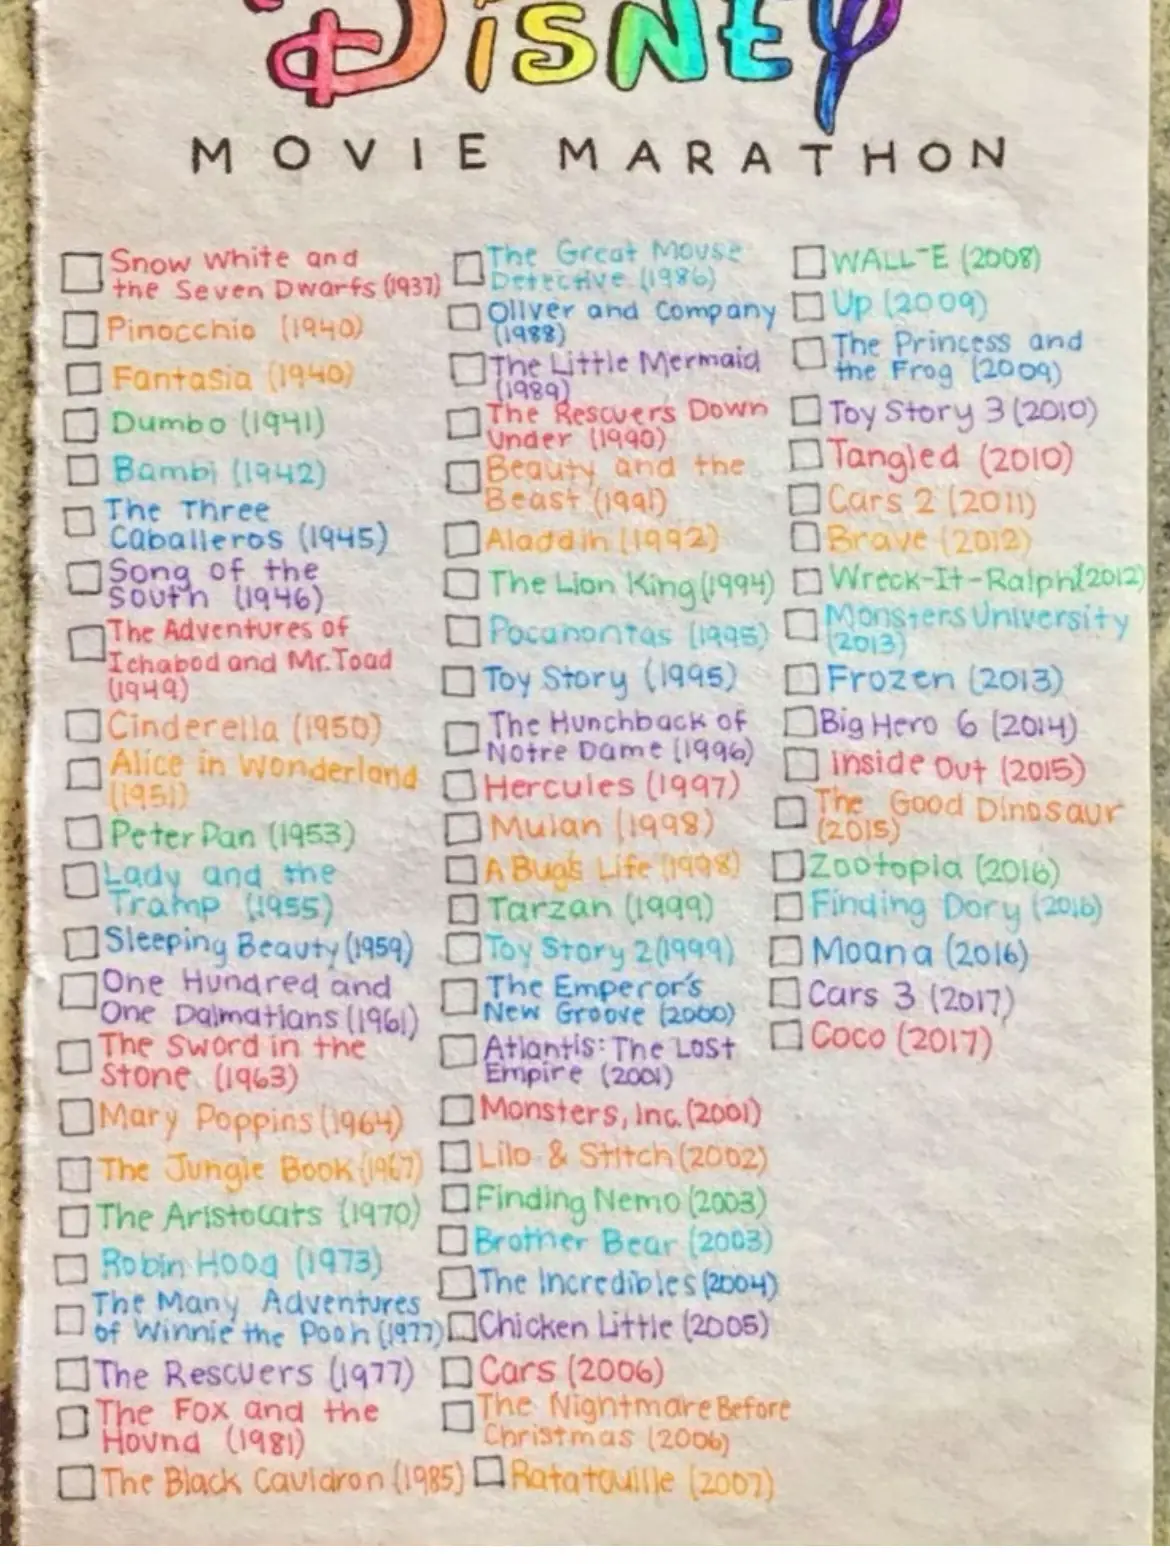 DISNEY
MOVIE MARATHON
Snow White and
the Seven Dwarfs (1937)
Pinocchio (1940)
Fantasia (1940)
Dumbo (1941)
Bambi (1942)
The Three
Caballeros (1945)
Song of the
South (1946)
The Adventures of
Ichabod and Mr. Toad
(1949)
Cinderella (1950)
Alice in Wonderland
(1951)
Peter Pan (1953)
Lady and the
Tramp (1955)
Sleeping Beauty (1959)
One Hundred and
One Dalmatians (1961)
The Sword in the
Stone (1963)
Mary Poppins (1964)
The Jungle Book (1967)
The Aristocats (1970)
Robin Hood (1973)
The Many Adventures
of Winnie the Pooh (1977)
The Rescuers (1977)
The Fox and the
Hound (1981)
The Black Cauldron (1985)
The Great Mouse
Detective (1986)
Oliver and Company
(1988)
The Little Mermaid
(1989)
The Rescuers Down
Under (1990)
Beauty and the
Beast (1991)
Aladdin (1992)
The Lion King (1994)
Pocahontas (1995)
Toy Story (1995)
The Hunchback of
Notre Dame (1996)
Hercules (1997)
Mulan (1998)
A Bug's Life (1998)
Tarzan (1999)
Toy Story 2 (1999)
The Emperor's
New Groove (2000)
Atlantis: The Lost
Empire (2001)
Monsters, Inc. (2001)
Lilo & Stitch (2002)
Finding Nemo (2003)
Brother Bear (2003)
The Incredibles (2004)
Chicken Little (2005)
Cars (2006)
The Nightmare Before
Christmas (2006)
Ratatouille (2007)
WALL-E (2008)
Up (2009)
The Princess and
the Frog (2009)
Toy Story 3 (2010)
Tangled (2010)
Cars 2 (2011)
Brave (2012)
Wreck-It-Ralph (2012)
Monsters University
(2013)
Frozen (2013)
Big Hero 6 (2014)
Inside Out (2015)
The Good Dinosaur
(2015)
Zootopia (2016)
Finding Dory (2016)
Moana (2016)
Cars 3 (2017)
Coco (2017)